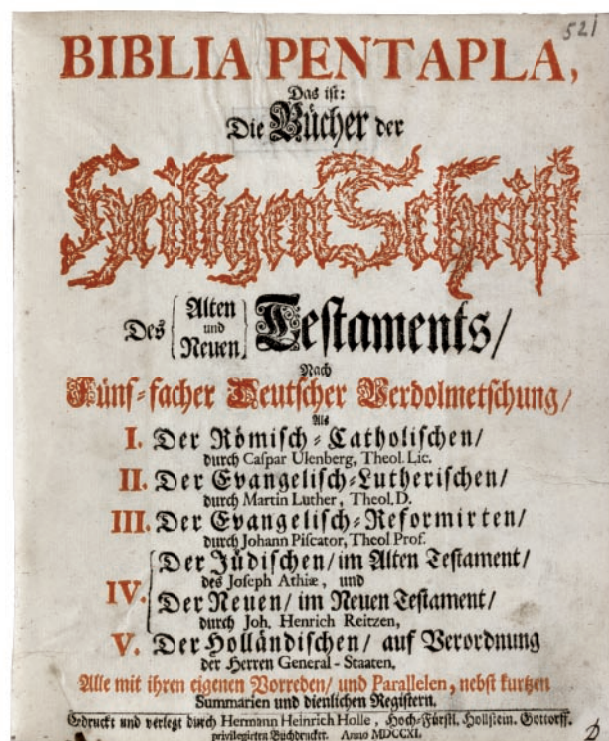 521
BIBLIA PENTAPLA,
Das ist:
Die Bücher der
Heiligen Schrift
Des Alten und Neuen Testaments/
Nach
Fünf-facher Deutscher Verdolmetschung/
Als
I. Der Römisch-Catholischen/
durch Caspar Ulenberg, Theol. Lic.
II. Der Evangelisch-Lutherischen/
durch Martin Luther, Theol. D.
III. Der Evangelisch-Reformirten/
durch Johann Piscator, Theol Prof.
IV. Der Jüdischen/ im Alten Testament/
des Joseph Athiæ, und
Der Neuen/ im Neuen Testament/
durch Joh. Henrich Reitzen,
V. Der Holländischen/ auf Verordnung
der Herren General-Staaten,
Alle mit ihren eigenen Vorreden/ und Parallelen, nebst kurtzen
Summarien und dienlichen Registern.
Gedruckt und verlegt durch Hermann Heinrich Holle, Hoch-Fürstl. Hollstein. Gottorff.
privilegirten Buchdrucker. Anno MDCCXI.